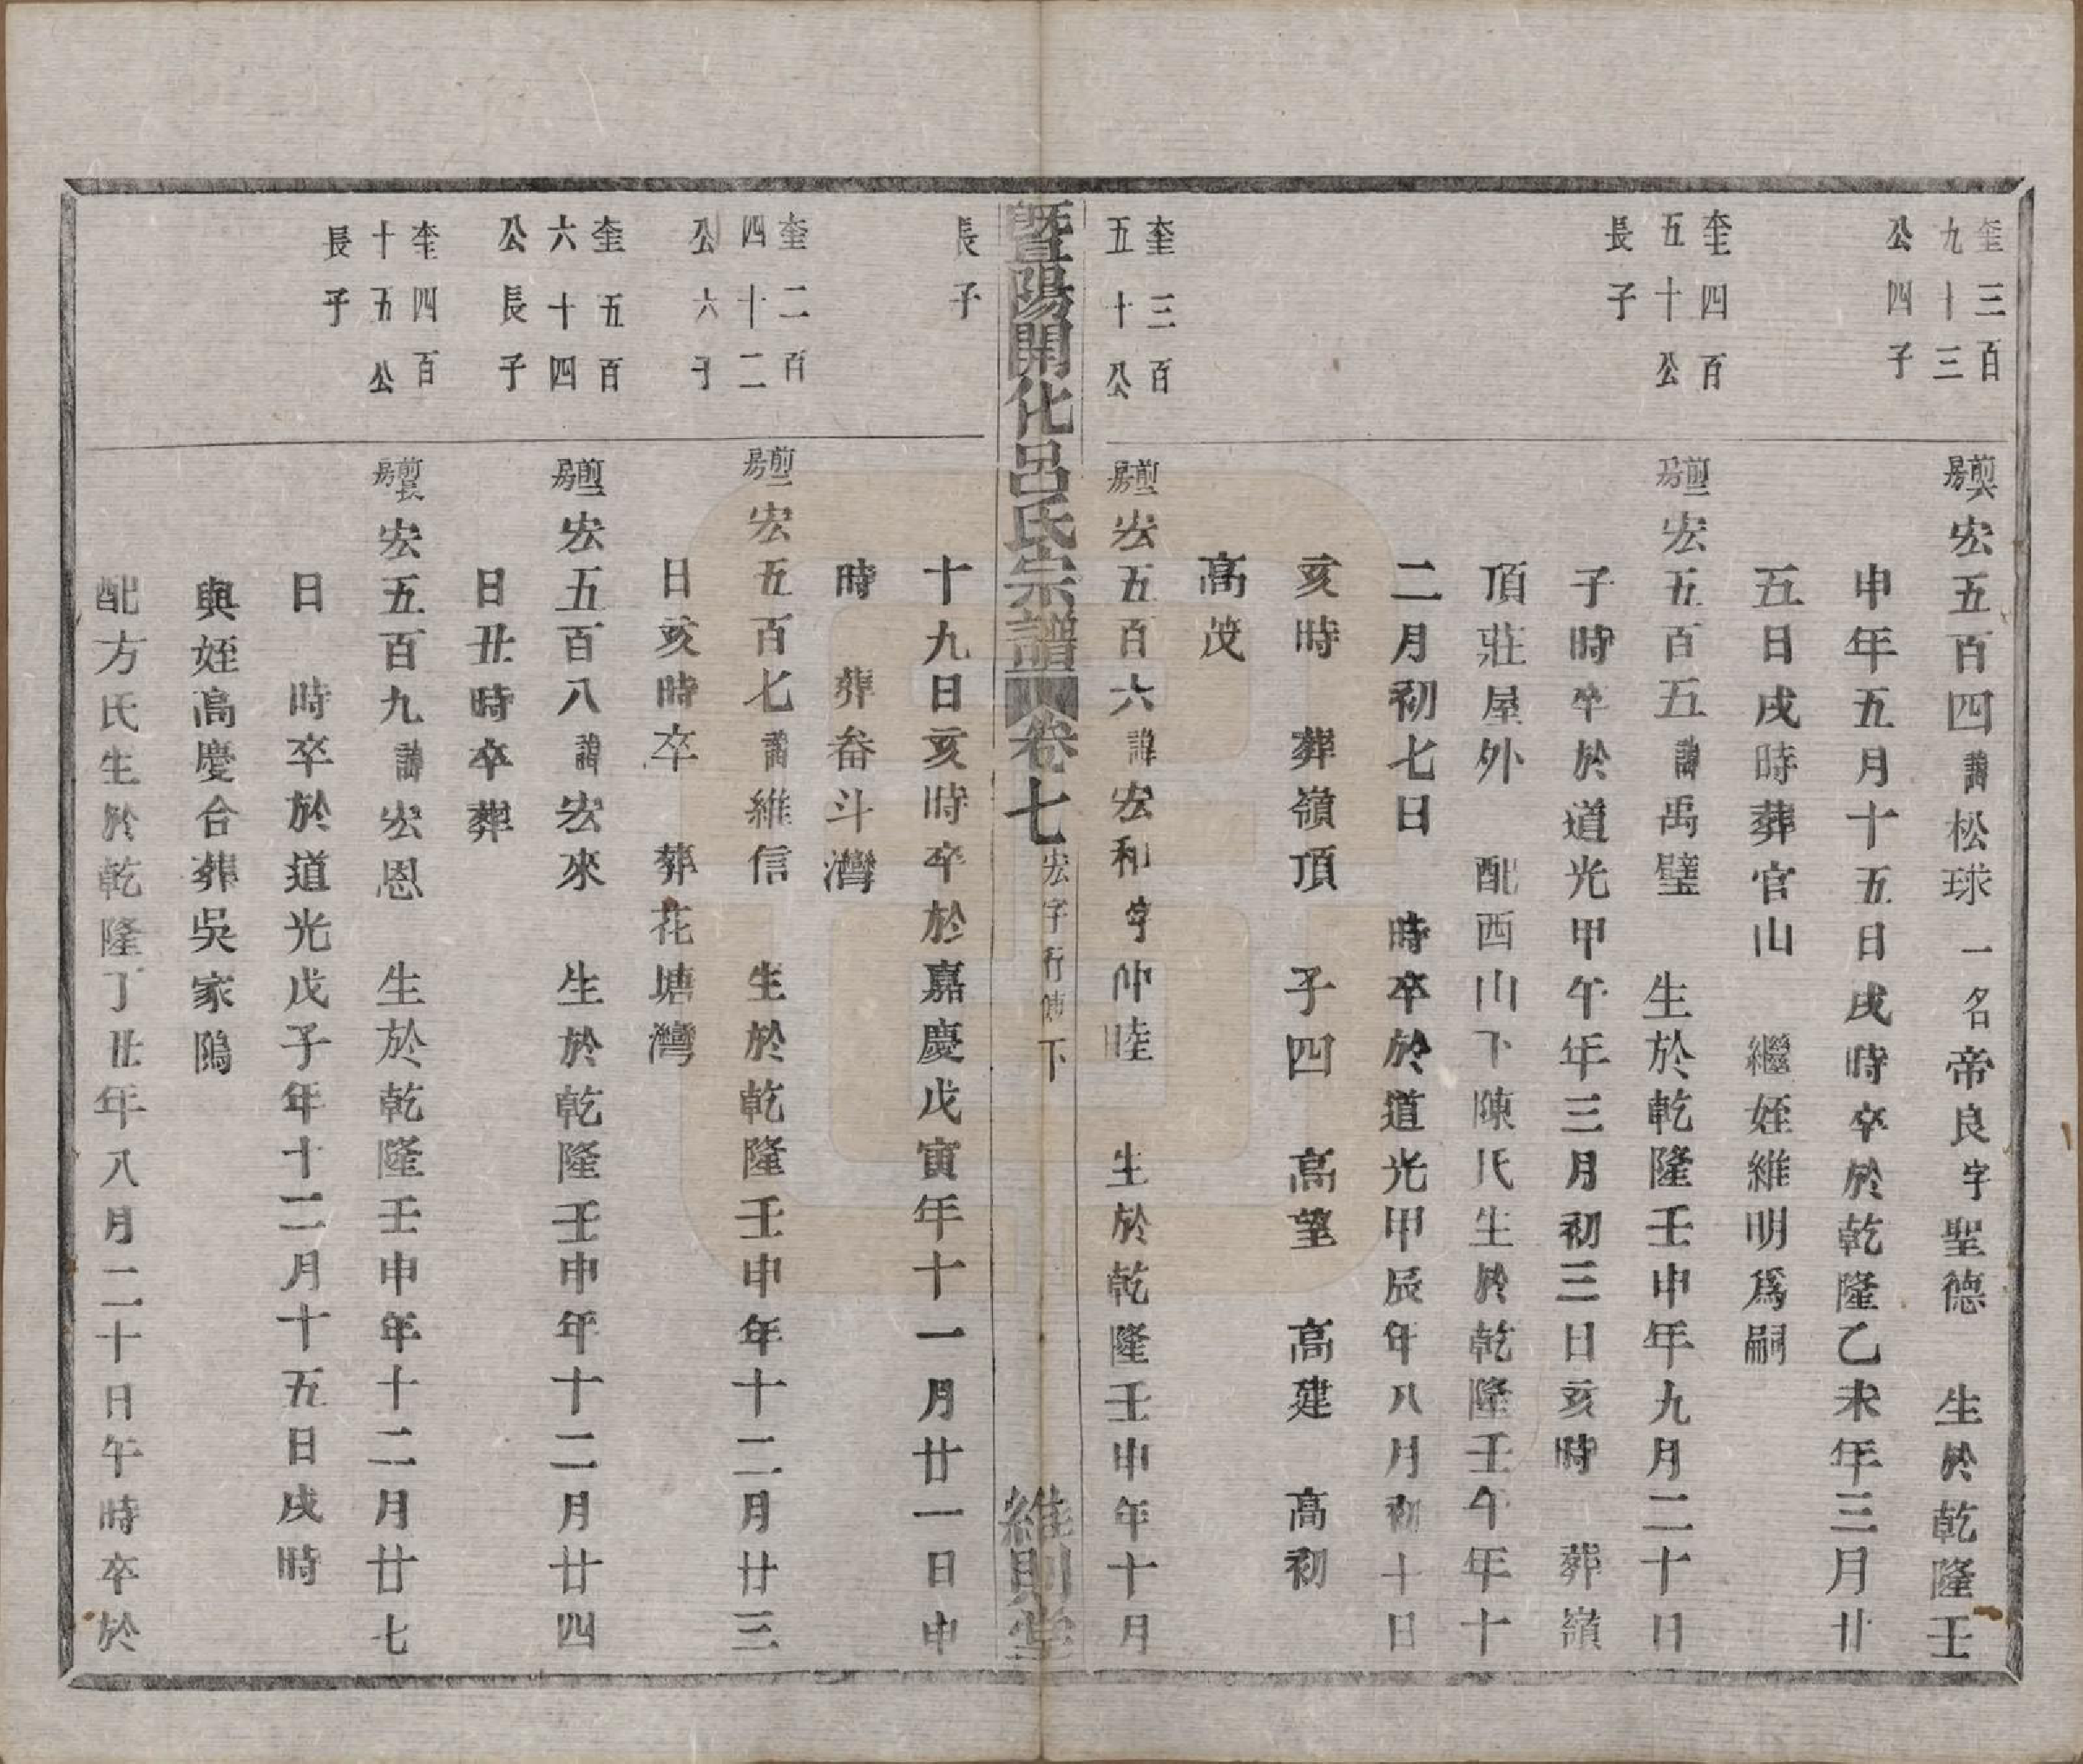 奎三百
九十三
公四子
宏五百四諱松球一名帝良字聖德 生於乾隆壬
申年五月十五日戌時卒於乾隆乙未年三月廿
五日戌時葬官山 繼姪維明爲嗣
奎四百
五十公
長子
宏五百五諱禹璧 生於乾隆壬申年九月二十日
子時卒於道光甲午年三月初三日亥時 葬嶺
頂莊屋外 配西山下陳氏生於乾隆壬午年十
二月初七日 時卒於道光甲辰年八月初十日
亥時 葬嶺頂 子四 高望 高建 高初
高茂
奎三百
五十公
長子
宏五百六諱宏和字仲睦 生於乾隆壬申年十月
暨陽開化呂氏宗譜 卷七 宏字行傳下 維則堂
十九日亥時卒於嘉慶戊寅年十一月廿一日申
時 葬畚斗灣
奎二百
四十二
公六子
宏五百七諱維信 生於乾隆壬申年十二月廿三
日亥時卒 葬花塘灣
奎五百
六十四
公長子
宏五百八諱宏來 生於乾隆壬申年十二月廿四
日丑時卒葬
奎四百
十五公
長子
房長宏五百九諱宏恩 生於乾隆壬申年十二月廿七
日 時卒於道光戊子年十二月十五日戌時
與姪高慶合葬吳家隖
配方氏生於乾隆丁丑年八月二十日午時卒於